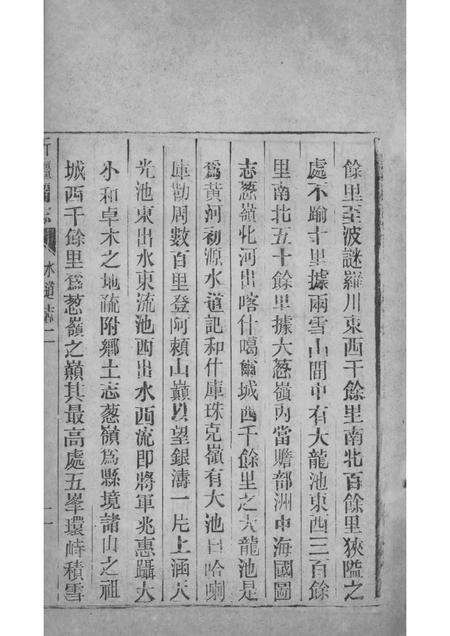 餘里至波謎羅川東西千餘里南北百餘里狹隘之
處不踰十里據兩雪山間中有大龍池東西三百餘
里南北五十餘里據大葱嶺內當贍部洲中海國圖
志葱嶺北河出喀什噶爾城西千餘里之大龍池是
爲黃河初源水道記和什庫珠克嶺有大池曰哈喇
庫勒周數百里登阿賴山巔以望銀濤一片上涵天
光池東出水東流池西出水西流即將軍兆惠躡大
小和卓木之地疏附鄉土志葱嶺爲縣境諸山之祖
城西千餘里爲葱嶺之巔其最高處五峯環峙積雪
新疆圖志 水道志二